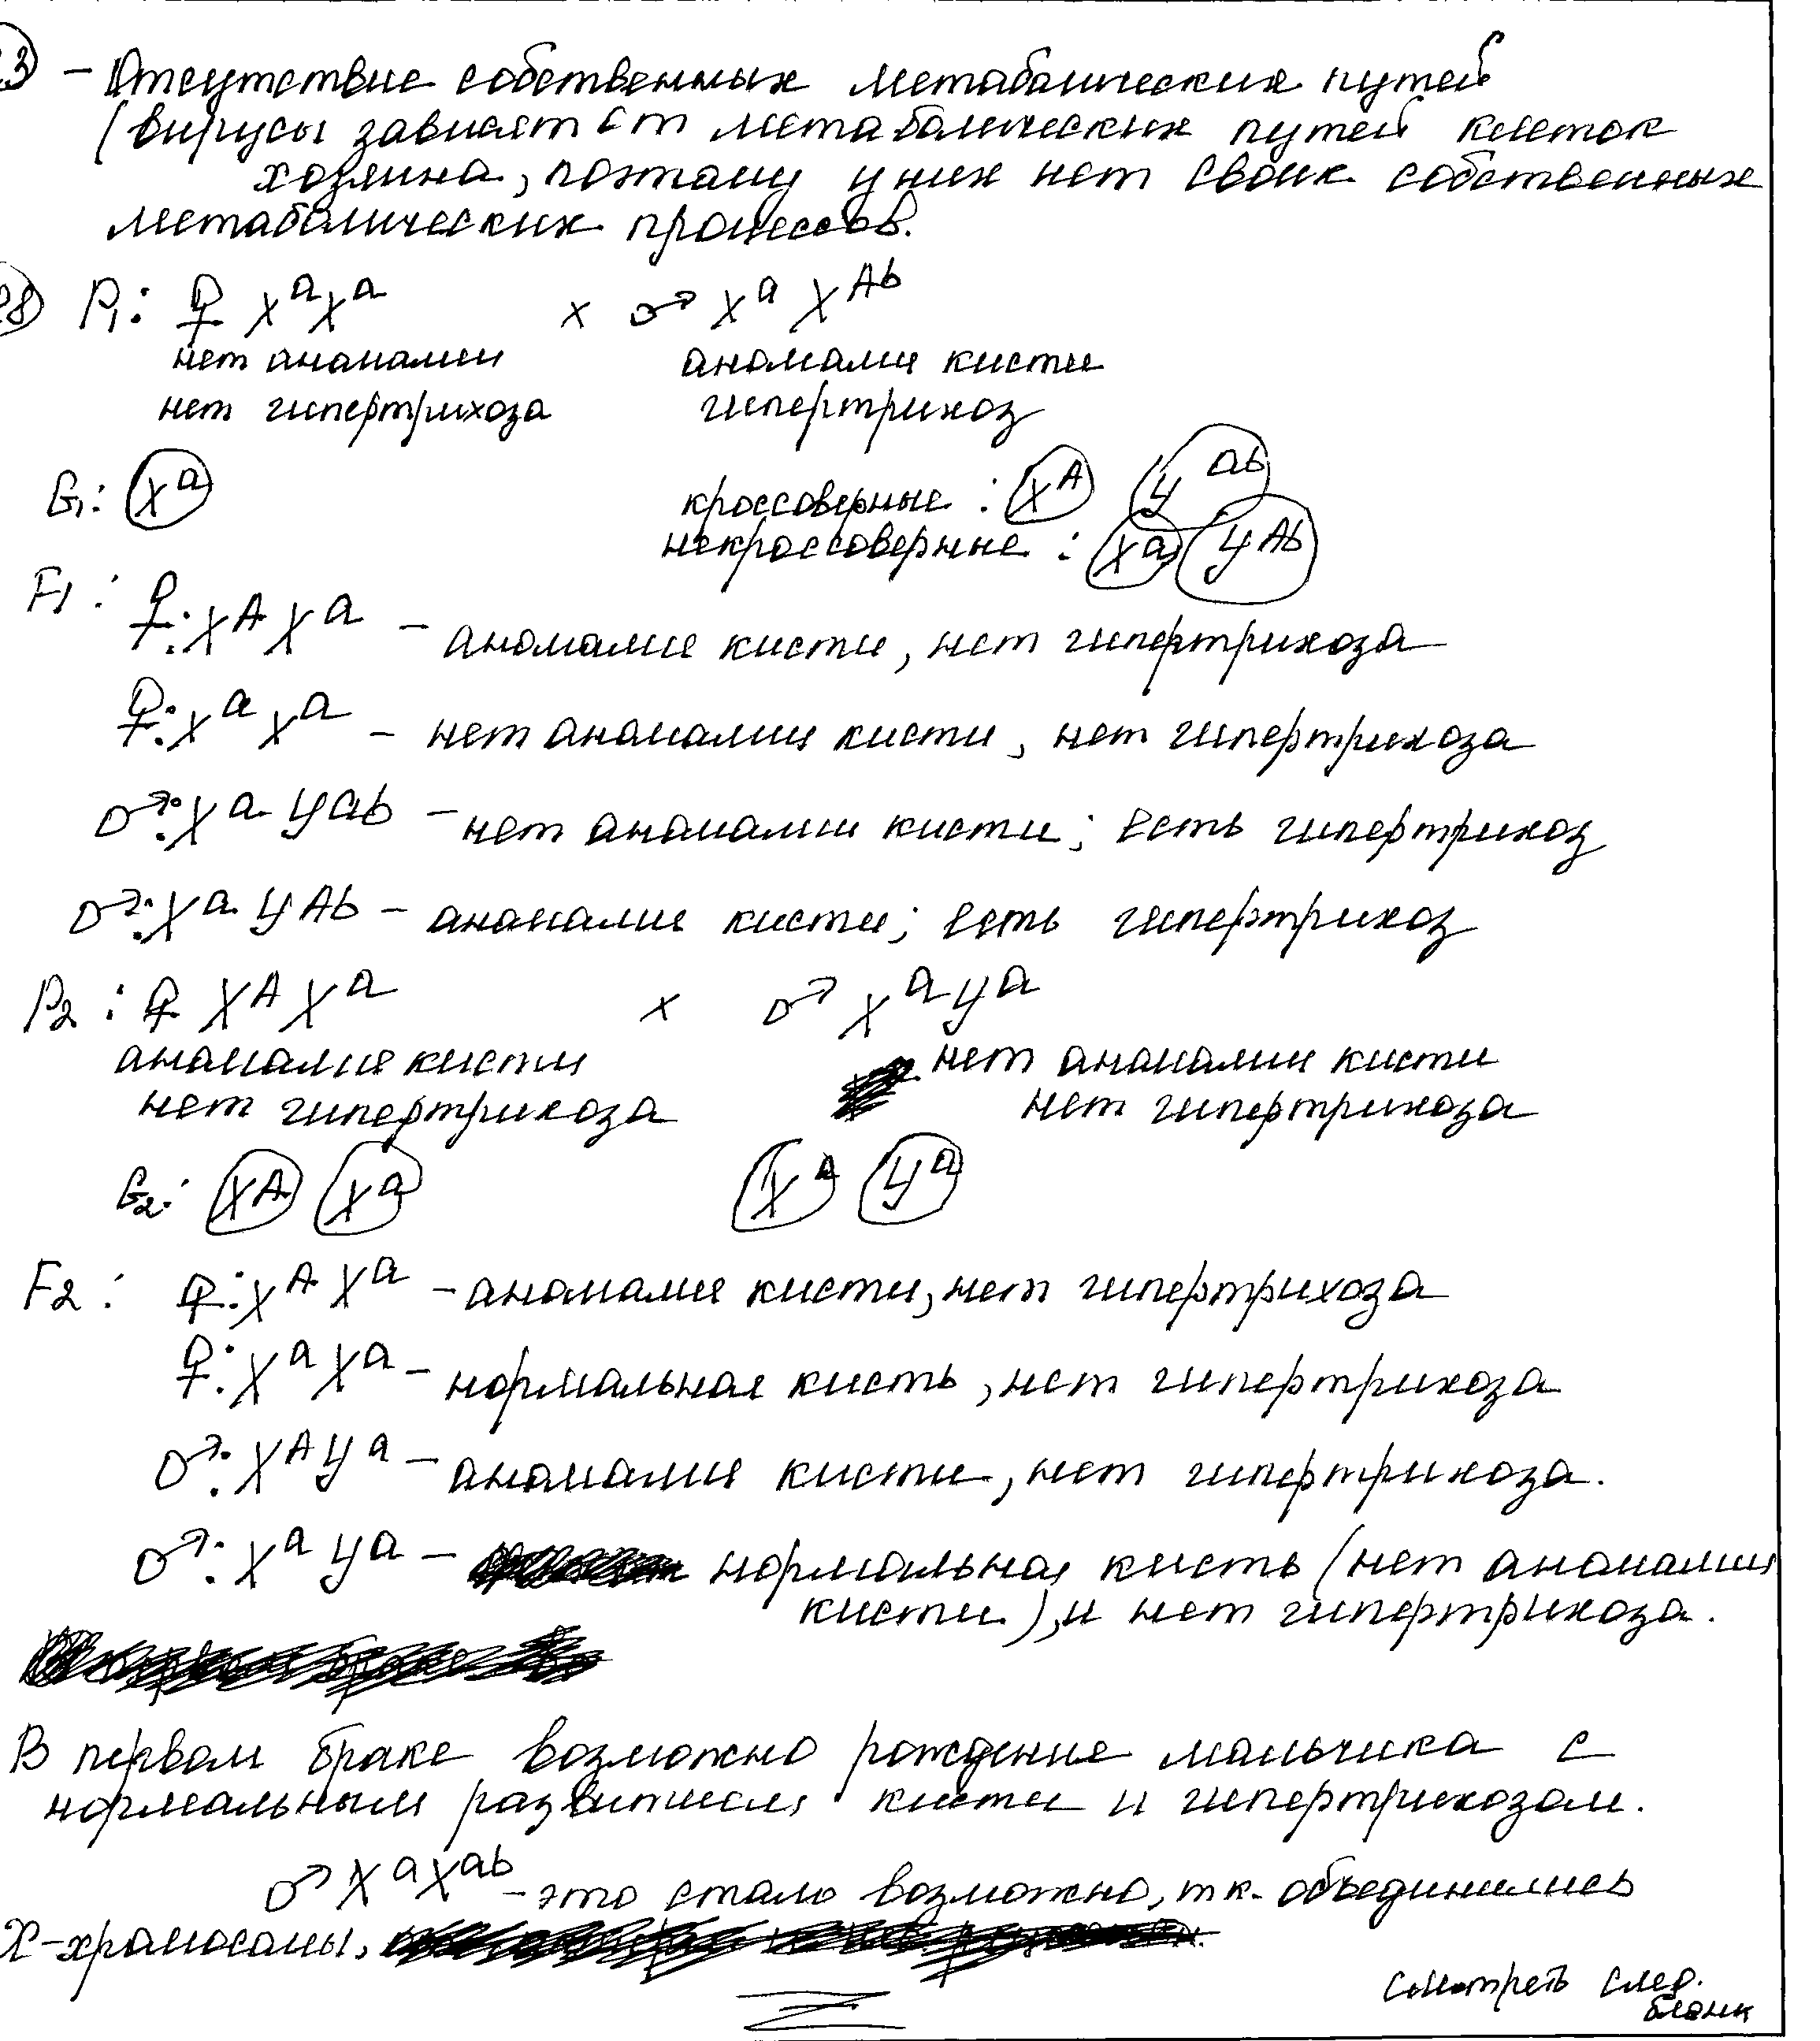 23) - Отсутствие собственных метаболических путей
(вирусы зависят от метаболических путей клеток
хозяина, поэтому у них нет своих собственных
метаболических процессов.
28) P1: ♀ X^a X^a × ♂ X^a X^Ab
нет аномалии аномалия кисти
нет гипертрихоза гипертрихоз
G1: (X^a) кроссоверные : (X^A) (Y^ab)
некроссоверные : (X^a) (Y^Ab)
F1 : ♀: X^A X^a - аномалия кисти, нет гипертрихоза
♀: X^a X^a - нет аномалии кисти, нет гипертрихоза
♂: X^a Y^ab - нет аномалии кисти; есть гипертрихоз
♂: X^a Y^Ab - аномалия кисти; есть гипертрихоз
P2 : ♀ X^A X^a × ♂ X^a Y^a
аномалия кисти нет аномалии кисти
нет гипертрихоза нет гипертрихоза
G2: (X^A) (X^a) (X^a) (Y^a)
F2 : ♀: X^A X^a - аномалия кисти, нет гипертрихоза
♀: X^a X^a - нормальная кисть, нет гипертрихоза
♂: X^A Y^a - аномалия кисти, нет гипертрихоза.
♂: X^a Y^a - нормальная кисть (нет аномалии
кисти), и нет гипертрихоза.
В первом браке возможно рождение мальчика с
нормальным развитием кисти и гипертрихозом.
♂ X^a X^ab - это стало возможно, т.к. объединились
X-хромосомы.
Смотреть след.
бланк